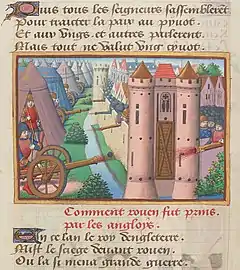 Puis tous les seigneurs sassemblerēt
Pour traitter la paix au pynot.
Et aux vngs et autres parlerent.
Mais tout ne valut vng tynot.
Comment rouen fut prins
par les angloys.
En ce lan le roy dengleterre.
Mist le siege deuant rouen.
Ou la si mena grande guerre.